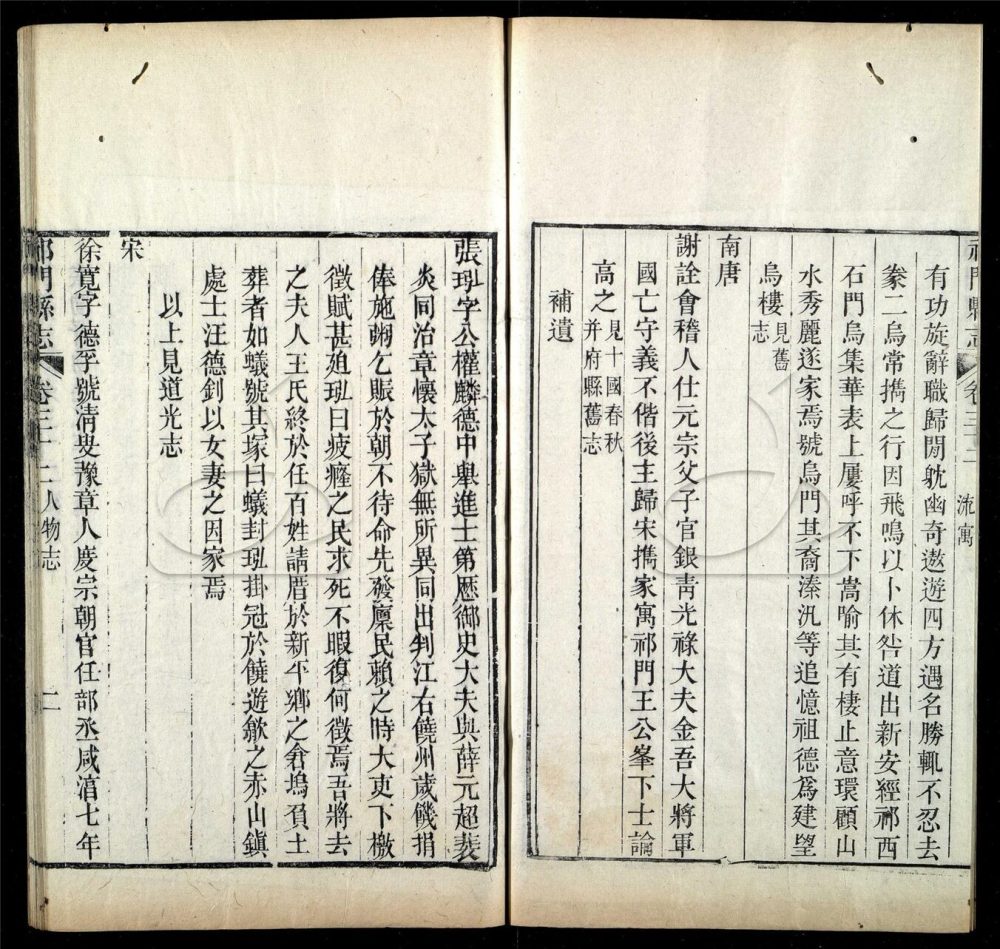 祁門縣志
卷三十二
流寓
有功旋辭職歸閒躭幽奇遨遊四方遇名勝輒不忍去
豢二烏常擕之行因飛鳴以卜休咎道出新安經祁西
石門烏集華表上屢呼不下嵩喻其有棲止意環顧山
水秀麗遂家焉號烏門其裔溱汎等追憶祖德爲建望
烏樓見舊志
南唐
謝詮會稽人仕元宗父子官銀青光祿大夫金吾大將軍
國亡守義不偕後主歸宋擕家寓祁門王公峯下士論
高之見十國春秋并府縣舊志
補遺
張珽字公權麟德中舉進士第歷御史大夫與薛元超裴
炎同治章懷太子獄無所異同出判江右饒州歲饑捐
俸施粥乞賑於朝不待命先發廩民賴之時大吏下檄
徵賦甚廹珽曰疲癃之民求死不暇復何徵焉吾將去
之夫人王氏終於任百姓請厝於新平鄉之倉塢負土
葬者如蟻號其塚曰蟻封珽掛冠於饒遊歙之赤山鎭
處士汪德釗以女妻之因家焉
以上見道光志
宋
徐寬字德孚號清叟豫章人度宗朝官任部丞咸淳七年
祁門縣志
卷三十二人物志
二